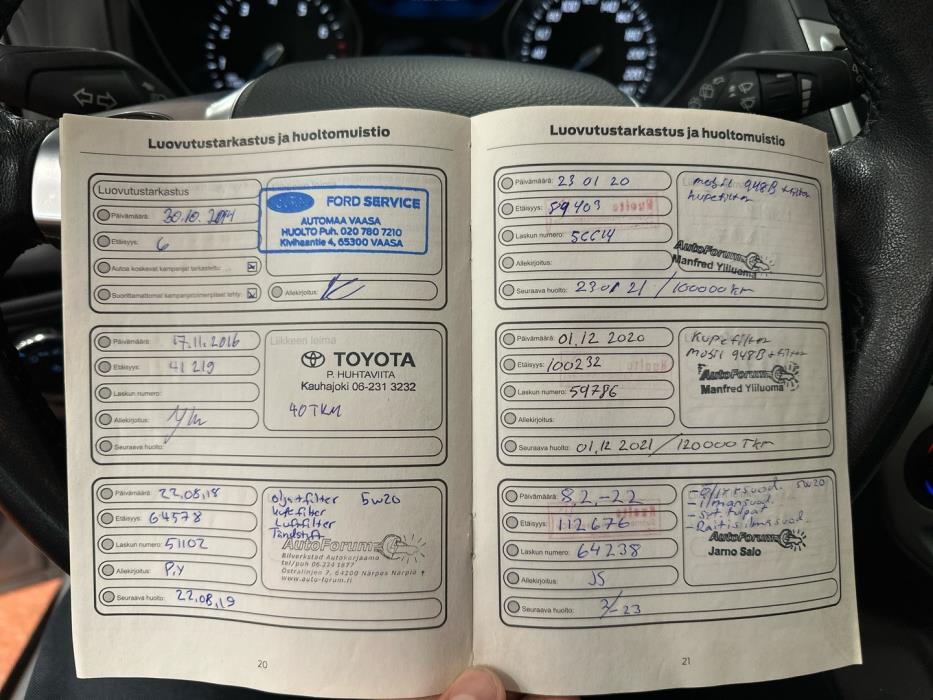 Luovutustarkastus ja huoltomuistio
Luovutustarkastus
Päivämäärä: 30.10.2014
Etäisyys: 6
Autoa koskevat kampanjat tarkastettu
Suorittamattomat kampanjatoimenpiteet tehty
FORD SERVICE
AUTOMAA VAASA
HUOLTO Puh. 020 780 7210
Kivihaantie 4, 65300 VAASA
Allekirjoitus:
Päivämäärä: 17.11.2016
Etäisyys: 41 219
Laskun numero:
Allekirjoitus:
Seuraava huolto:
Liikkeen leima
TOYOTA
P. HUHTAVIITA
Kauhajoki 06-231 3232
40 TKM
Päivämäärä: 22.08.18
Etäisyys: 64578
Laskun numero: 51102
Allekirjoitus: P.Y
Seuraava huolto: 22.08.19
oljefilter 5w20
Luftfilter
Tändstift
AutoForum
Bilverkstad Autokorjaamo
tel/puh 06-224 1877
Östralinjen 7, 64200 Närpes Närpiö
www.auto-forum.fi
20
Luovutustarkastus ja huoltomuistio
Päivämäärä: 23 01 20
Etäisyys: 89403
Laskun numero:
Allekirjoitus:
Seuraava huolto: 23 01 21 / 100000 km
mobil 948B + filter
kupefilter
AutoForum
Manfred Yliluoma
Päivämäärä: 01.12 2020
Etäisyys: 100232
Laskun numero: 59786
Allekirjoitus:
Seuraava huolto: 01.12 2021 / 120000 Tkm
Kupefilter
Mobil 948B + filter
AutoForum
Manfred Yliluoma
Päivämäärä: 8.2.-22
Etäisyys: 112676
Laskun numero: 64238
Allekirjoitus: JS
Seuraava huolto: 2/-23
5w20
- Ilmansuod.
- Syt. tulpat
- Raitis ilmasuod.
AutoForum
Jarno Salo
21